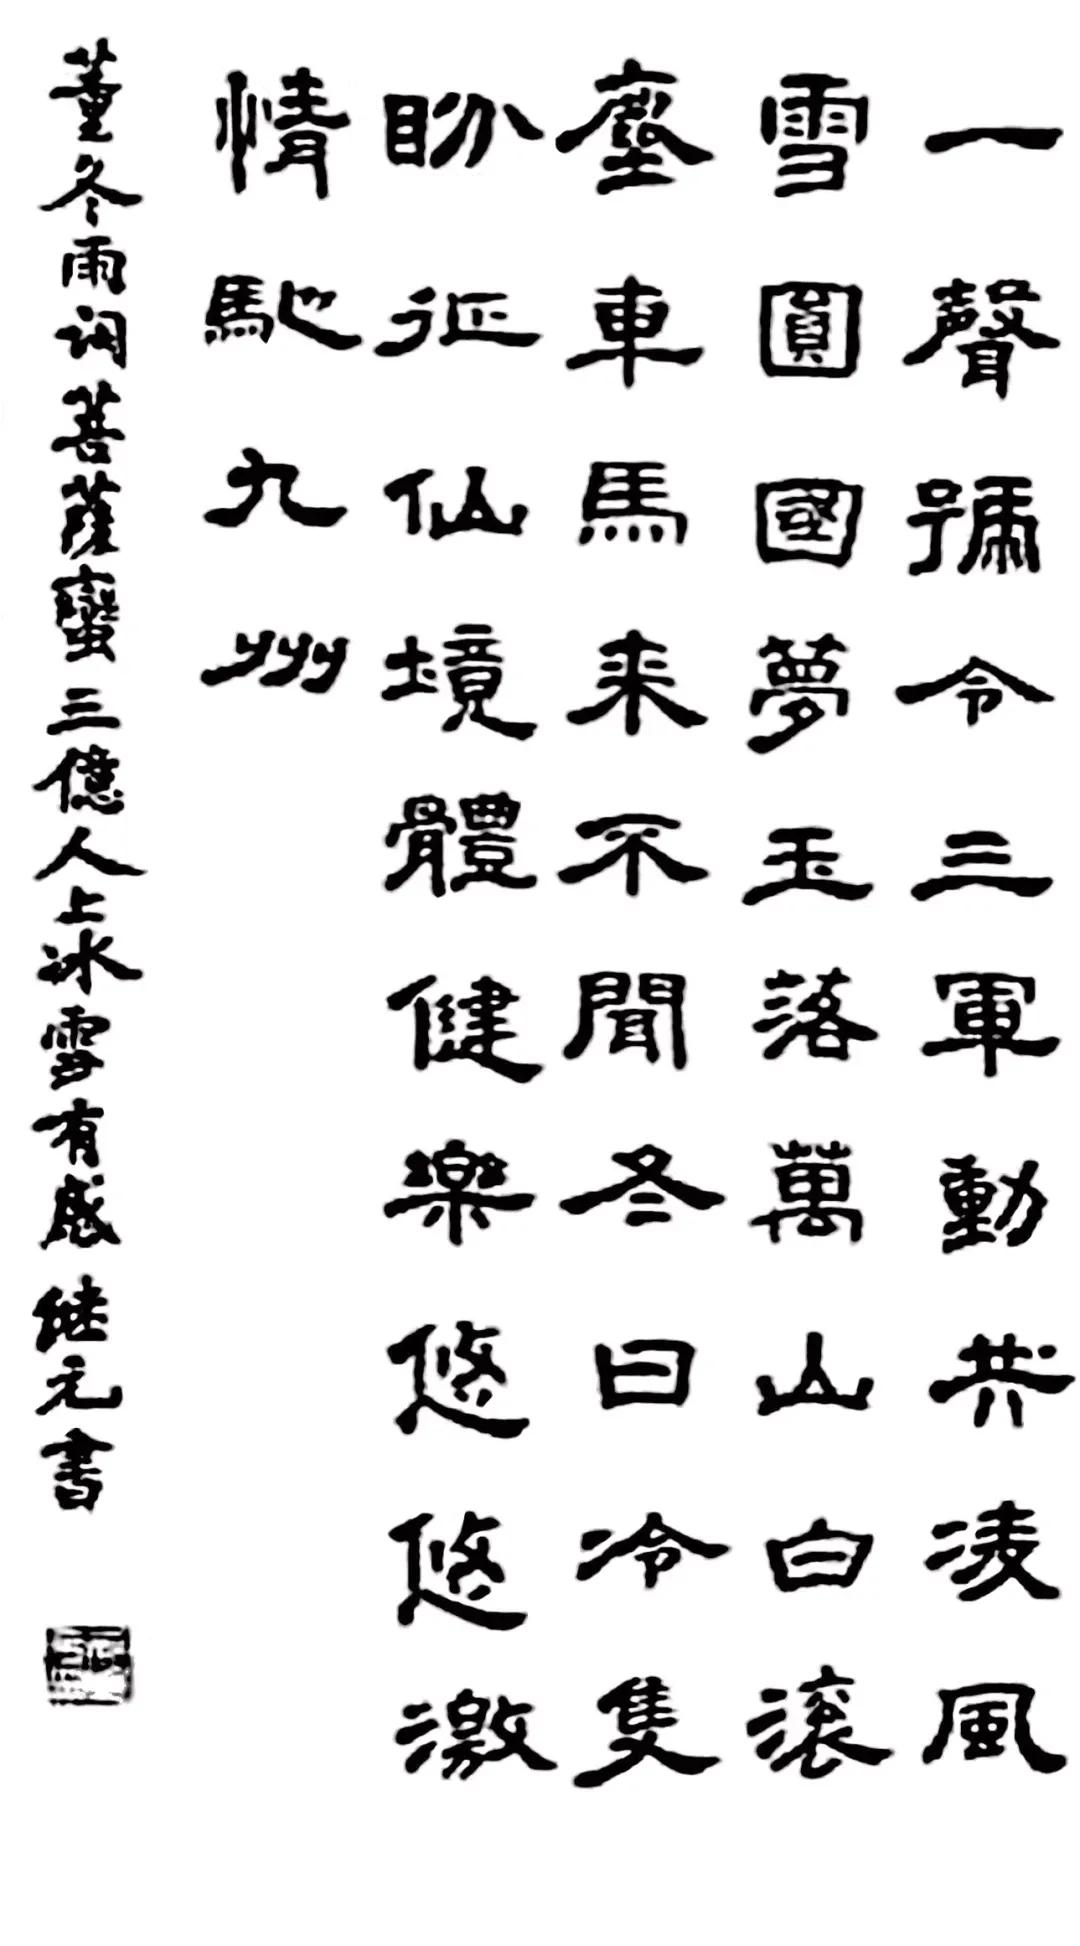 一聲號令三軍動共淩風
雪圓國夢玉落萬山白滚
塵車馬来不聞冬日冷隻
盼征仙境體健樂悠悠激
情馳九州
董冬雨词菩薩蠻三億人上冰雪有感继元書